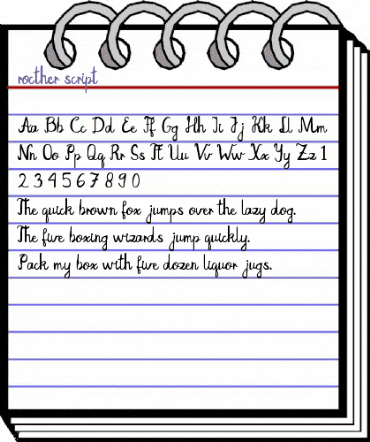 rocther script
Aa Bb Cc Dd Ee Ff Gg Hh Ii Jj Kk Ll Mm
Nn Oo Pp Qq Rr Ss Tt Uu Vv Ww Xx Yy Zz 1
2 3 4 5 6 7 8 9 0
The quick brown fox jumps over the lazy dog.
The five boxing wizards jump quickly.
Pack my box with five dozen liquor jugs.